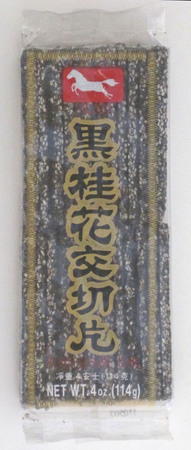 黑桂花交切片
淨重4安士(114克)
NET WT. 4oz. (114g)